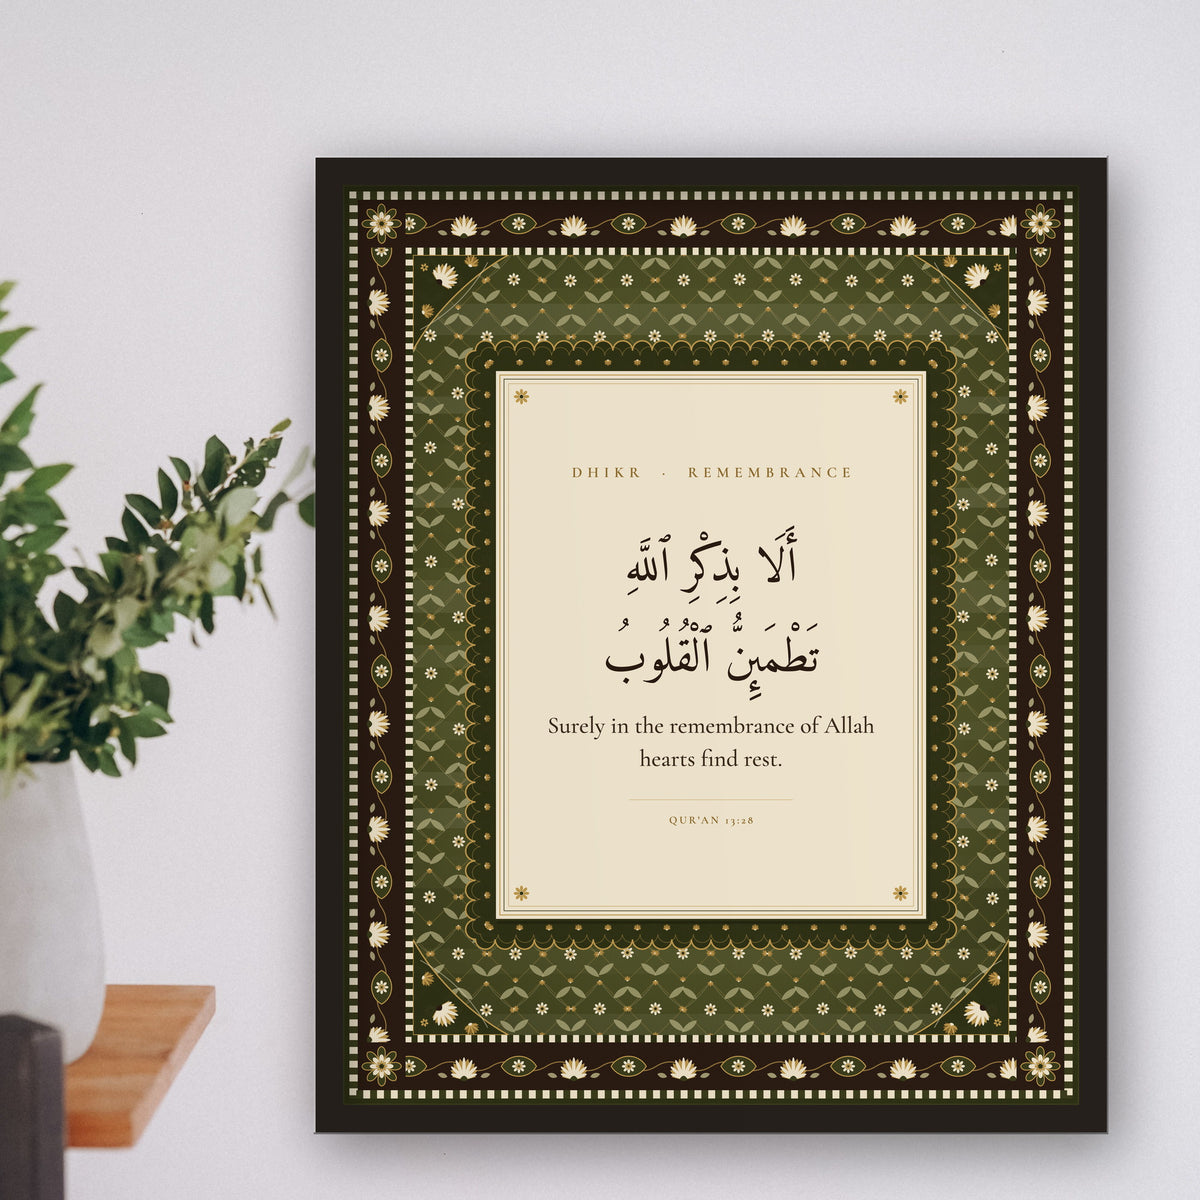 DHIKR · REMEMBRANCE
أَلَا بِذِكْرِ ٱللَّهِ
تَطْمَئِنُّ ٱلْقُلُوبُ
Surely in the remembrance of Allah
hearts find rest.
QUR'AN 13:28